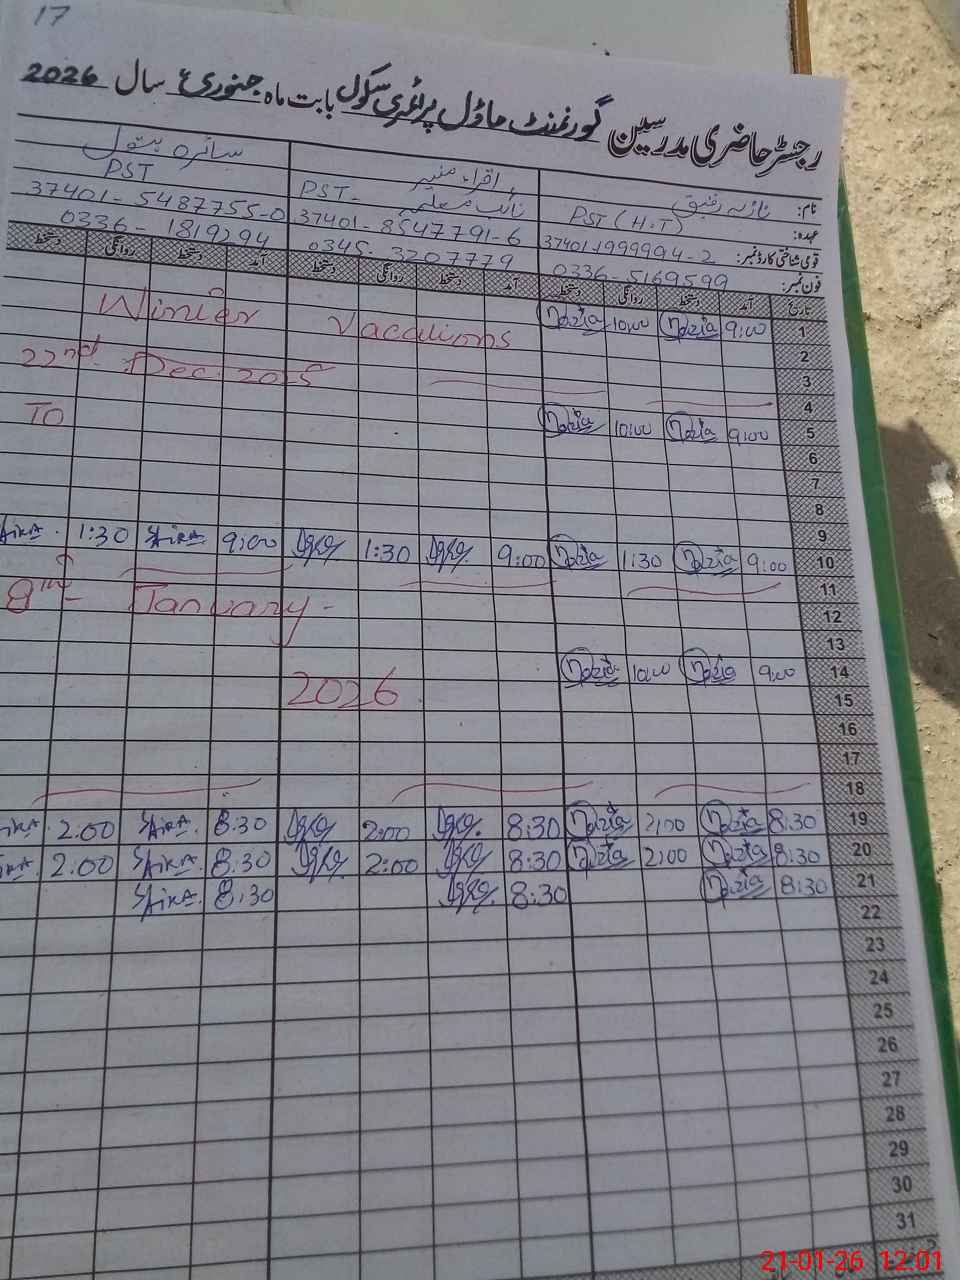 17
رجسٹر حاضری مدرسین گورنمنٹ ماڈل پرائمری سکول بابت ماہ جنوری سال 2026
نام: نازیہ رفیق اقراء منیر سائرہ بتول
عہدہ: PST (H.T) PST - نائب معلمہ PST
قومی شناختی کارڈ نمبر: 37401-1999994-2 37401-8547791-6 37401-5487755-0
فون نمبر: 0336-5169599 0345-3207779 0336-1819294
تاریخ آمد دستخط روانگی دستخط آمد دستخط روانگی دستخط آمد دستخط روانگی
1 9:00 Nazia 10:00 Nazia
Winter Vacations
2
3
22nd Dec. 2025
4
TO
5 9:00 Nazia 10:00 Nazia
6
7
8
9
10 9:00 Nazia 1:30 Nazia 9:00 1:30 9:00 Saira 1:30 Saira
11
8th - January -
12
13
14 9:00 Nazia 10:00 Nazia
15
2026
16
17
18
19 8:30 Nazia 2:00 Nazia 8:30 2:00 8:30 Saira 2:00
20 8:30 Nazia 2:00 Nazia 8:30 2:00 8:30 Saira 2:00
21 8:30 Nazia 8:30 8:30 Saira
22
23
24
25
26
27
28
29
30
31
21-01-26 12:01